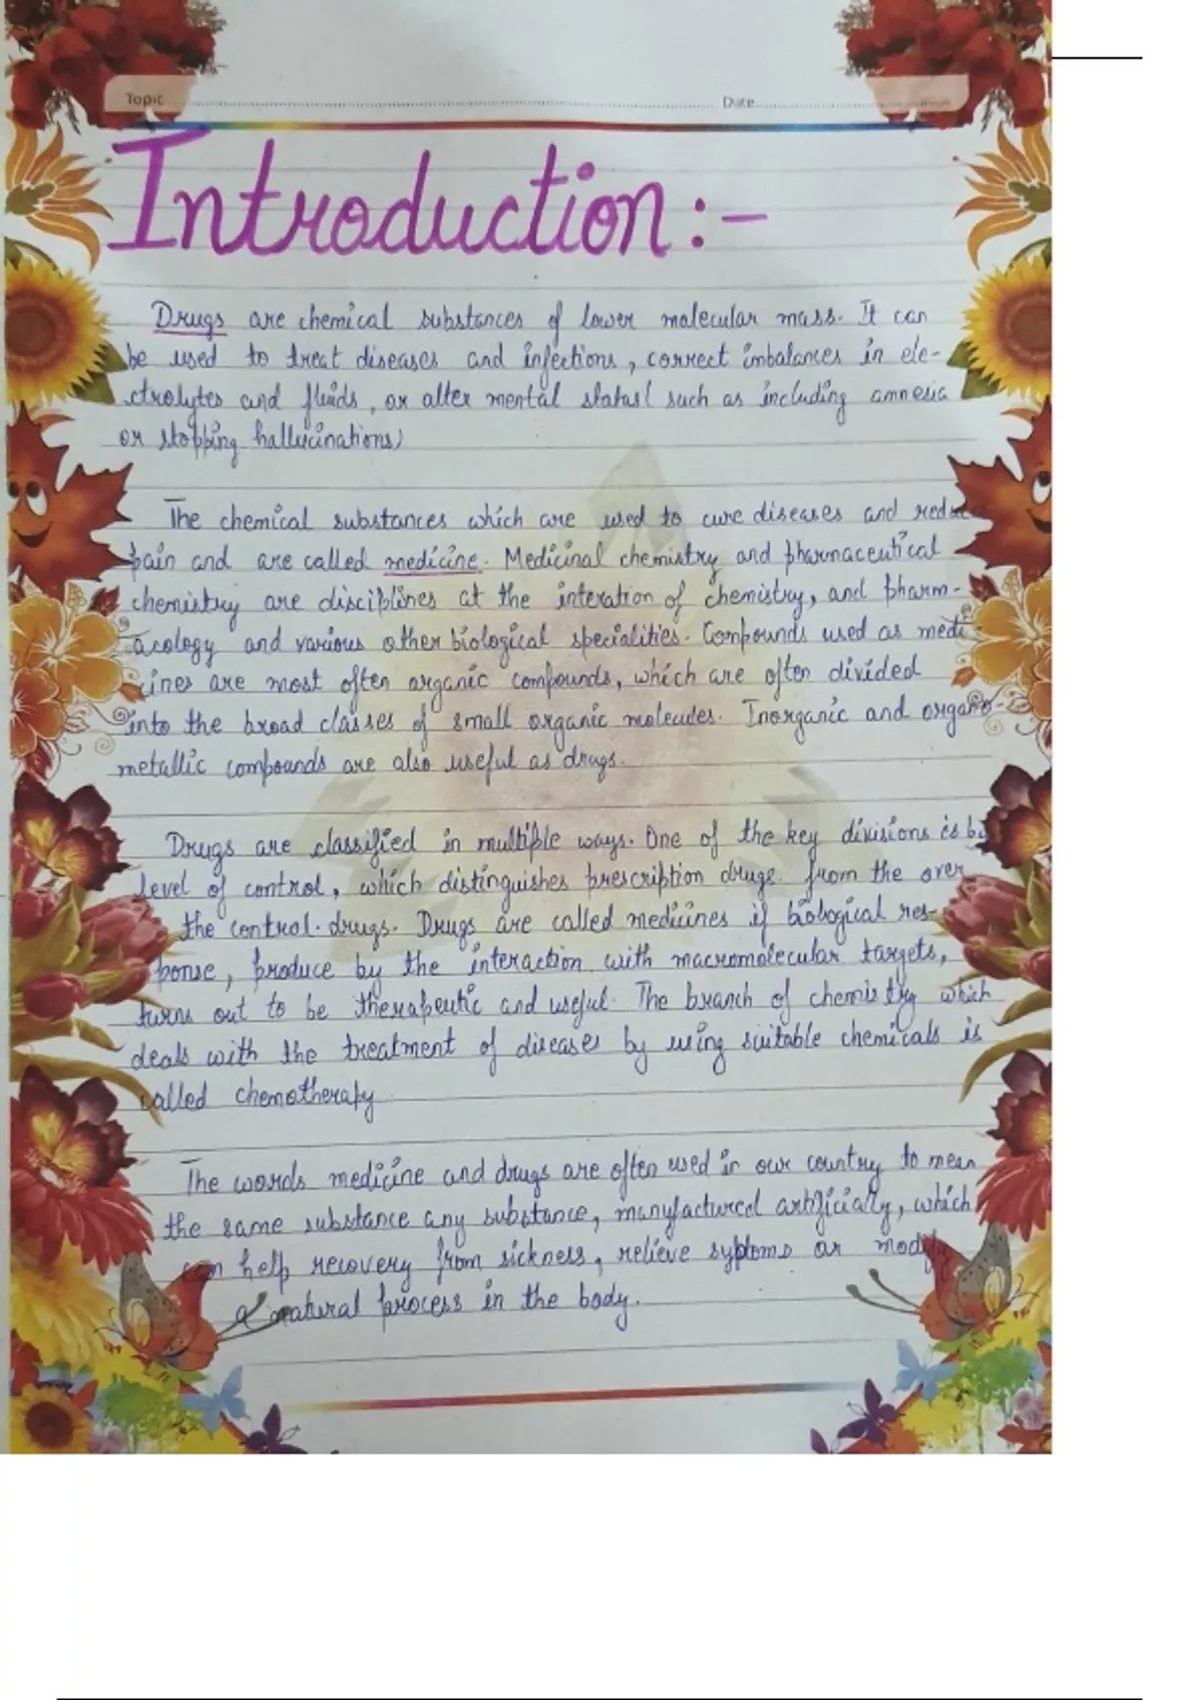 Topic
Date
Introduction:-
Drugs are chemical substances of lower molecular mass. It can
be used to treat diseases and infections, correct imbalances in ele-
ctrolytes and fluids, or alter mental status( such as including amnesia
or stopping hallucinations)
The chemical substances which are used to cure diseases and reduce
pain and are called medicine. Medicinal chemistry and pharmaceutical
chemistry are disciplines at the interation of chemistry, and pharm-
acology and various other biological specialities. Compounds used as medi
cines are most often organic compounds, which are often divided
into the broad classes of small organic molecules. Inorganic and organo-
metallic compounds are also useful as drugs.
Drugs are classified in multiple ways. One of the key divisions is by
level of control, which distinguishes prescription drugs from the over
the control. drugs. Drugs are called medicines if biological res-
ponse, produce by the interaction with macromolecular targets,
turns out to be therapeutic and useful. The branch of chemistry which
deals with the treatment of diseases by using suitable chemicals is
called chemotherapy
The words medicine and drugs are often used in our country to mean
the same substance any substance, manufactured artificially, which
can help recovery from sickness, relieve syptoms or modify
a natural process in the body.